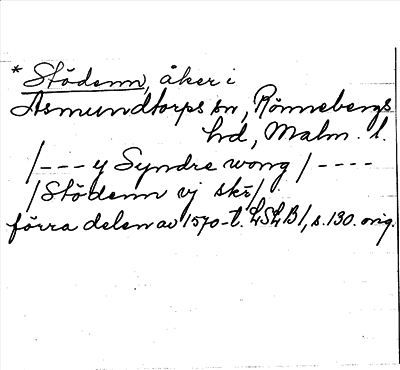 * Stödenn, åker i
Asmundtorps sn, Rönnebergs
hd, Malm. l.
/--- y Syndre wong / ----
/ Stödenn vj skr /
förra delen av 1570-t. LSLB /, s. 130. orig.